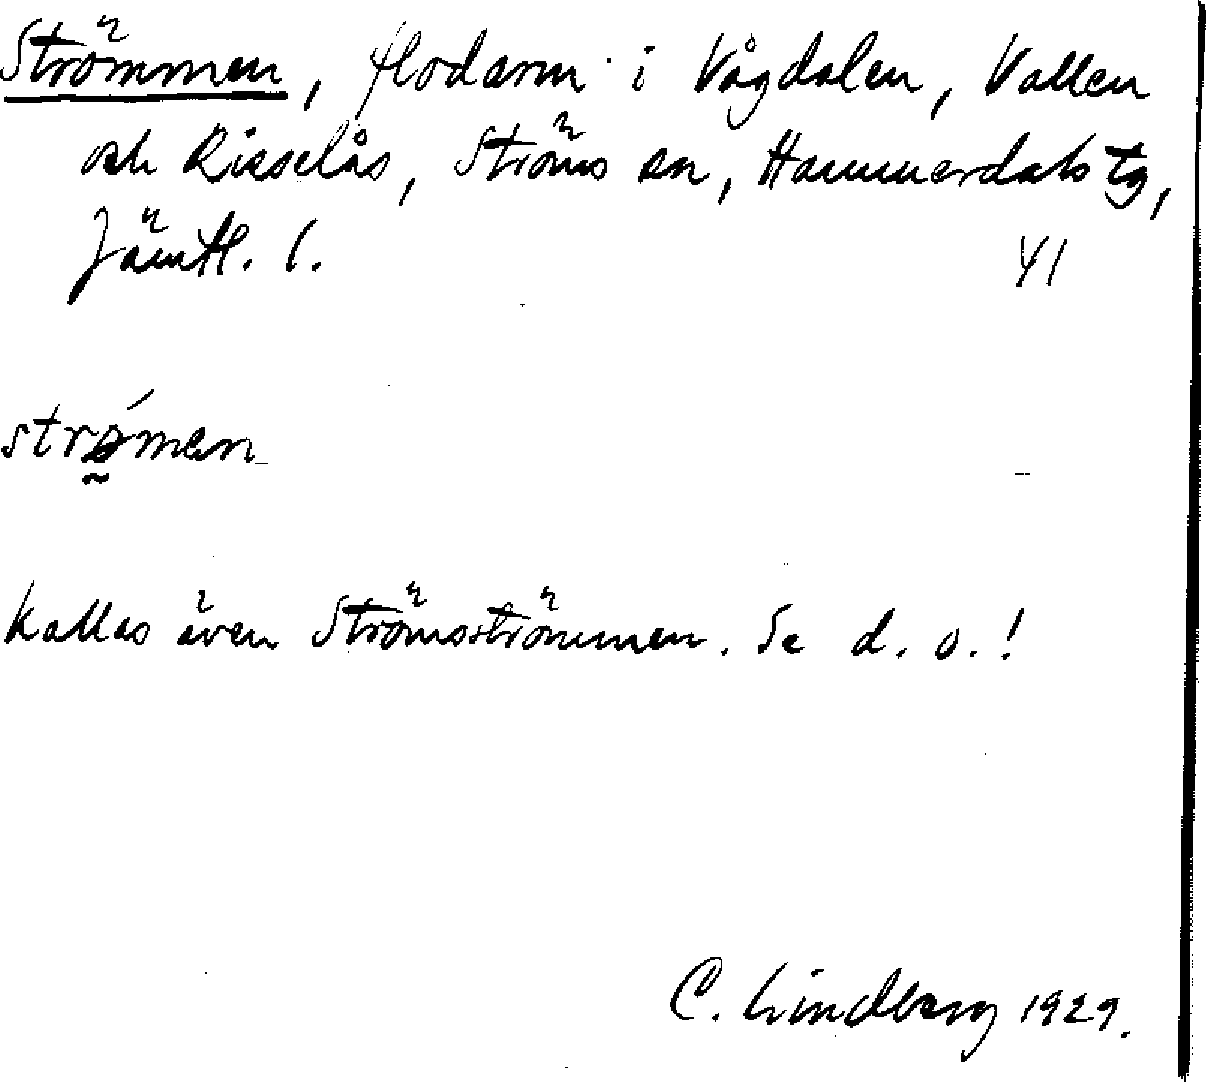 Strömmen, flodarm i Vågdalen, Vallen
och Risselås, Ströms sn, Hammerdals tg,
Jämtl. l. 41
strǿ̰men
kallas även Strömsströmmen. Se d. o.!
C. Lindberg 1929.